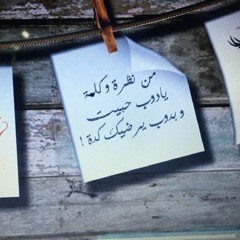 من نظرة وكلمة
يادوب حبيت
و بدوب يرضيك كدة !